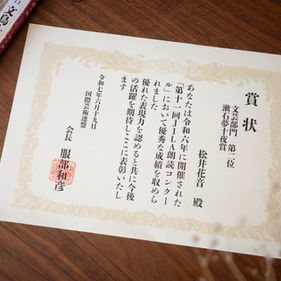 賞状
文芸部門 第二位
漱石夢十夜賞
松井花音 殿
あなたは令和六年に開催された
「第十一回JILA朗読コンクー
ル」において優秀な成績を収めら
れました
優れた表現力を認めると共に今後
の活躍を期待しここに表彰いたし
ます
令和七年六月十九日
国際芸術連盟
会長 服部和彦